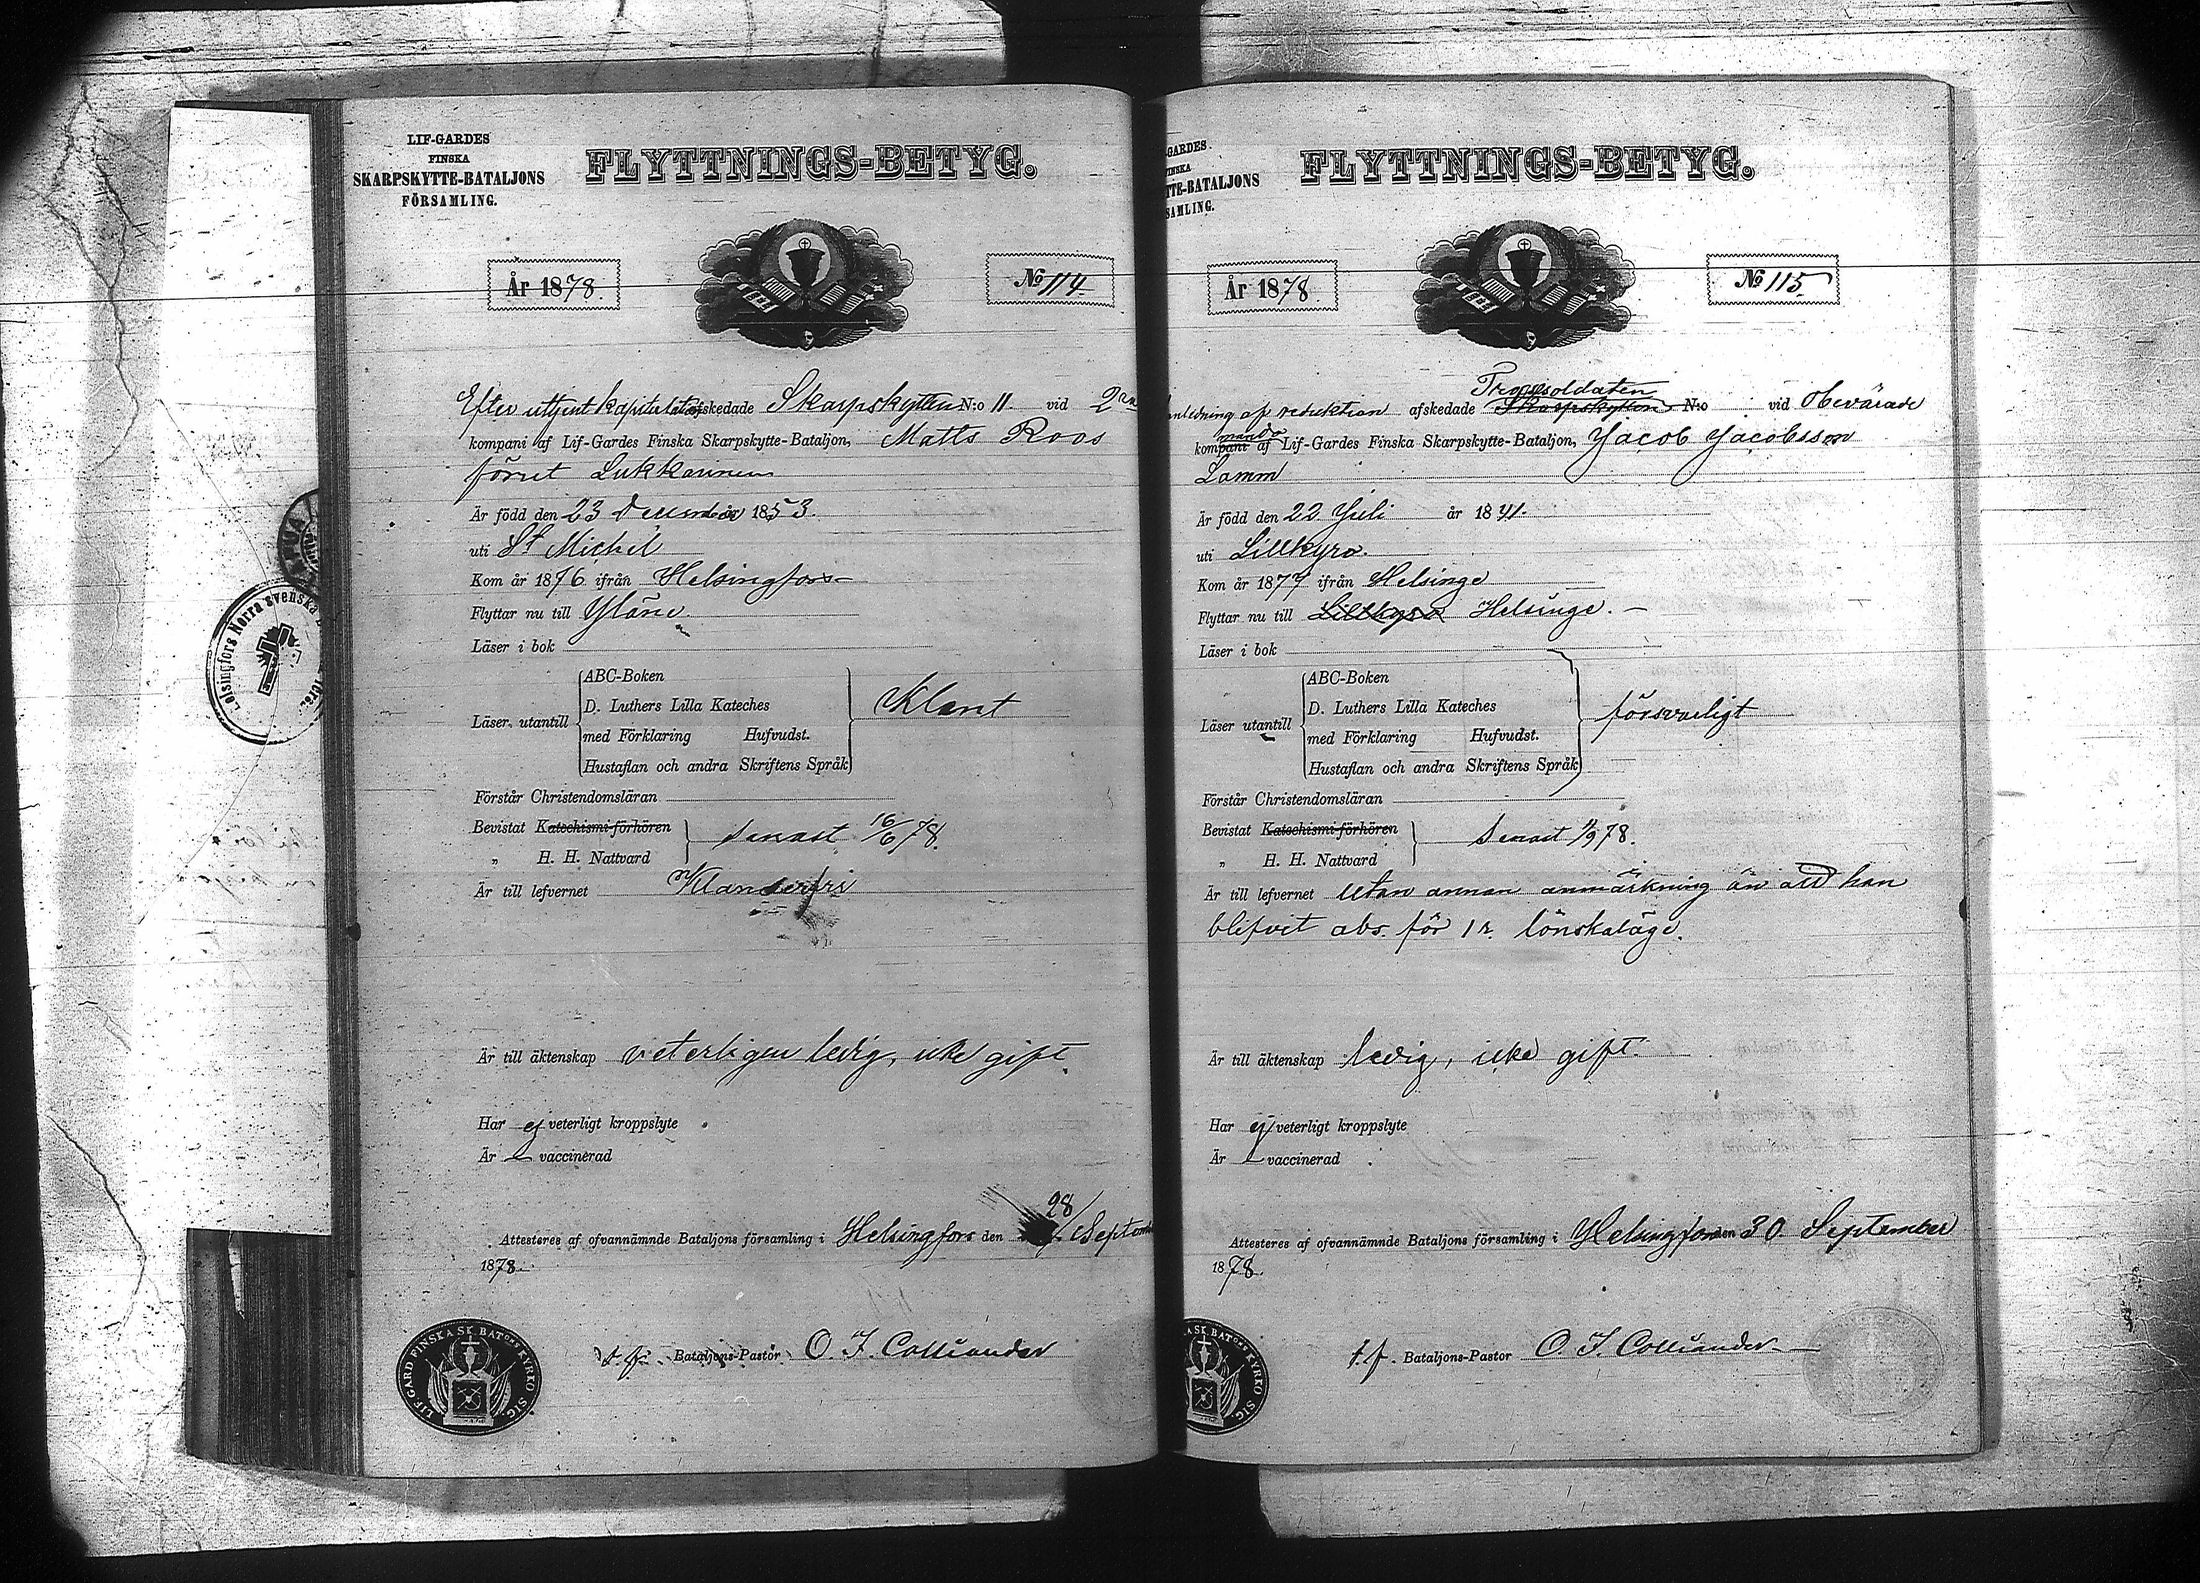 LIF-GARDES
FINSKA
SKARPSKYTTE-BATALJONS
FÖRSAMLING.
FLYTTNINGS-BETYG.
År 1878.
No 114.
Efter uttjent kapitulation afskedade Skarpskytten N:o 11 vid 2ra
kompani af Lif-Gardes Finska Skarpskytte-Bataljon, Matts Roos
förut Lukkarinen
Är född den 23 December 1853.
uti St Michel
Kom år 1876 ifrån Helsingfors
Flyttar nu till Yläne
Läser i bok
Läser utantill
ABC-Boken
D. Luthers Lilla Kateches
med Förklaring Hufvudst.
Hustaflan och andra Skriftens Språk
Klent
Förstår Christendomsläran
Bevistat Katechismi-förhören
„ H. H. Nattvard
senast 16/6 78.
Är till lefvernet Klanderfri
Är till äktenskap veterligen ledig, icke gift.
Har ej veterligt kroppslyte
Är vaccinerad
Attesteras af ofvannämnde Bataljons församling i Helsingfors den 28/ Septem
1878.
t. f. Bataljons-Pastor O. F. Colliander
LIF. GARD FINSKA SK. BATons KYRKO SIG.
Helsingfors Norra svenska
GARDES
FINSKA
TTE-BATALJONS
SAMLING.
FLYTTNINGS-BETYG.
År 1878.
No 115.
Trossoldaten
anledning af reduktion afskedade Skarpskytten N:o vid Obevärade
mando
kompani af Lif-Gardes Finska Skarpskytte-Bataljon, Jacob Jacobsson
Lamm
Är född den 22 Juli år 1841.
uti Lillkyro.
Kom år 1877 ifrån Helsinge
Flyttar nu till Lillkyro Helsinge. –
Läser i bok
Läser utantill
ABC-Boken
D. Luthers Lilla Kateches
med Förklaring Hufvudst.
Hustaflan och andra Skriftens Språk
försvarligt
Förstår Christendomsläran
Bevistat Katechismi-förhören
„ H. H. Nattvard
senast /9 78.
Är till lefvernet utan annan anmärkning än att han
blifvit abs. för 1 r. lönskaläge.
Är till äktenskap ledig, icke gift.
Har ej veterligt kroppslyte
Är vaccinerad
Attesteras af ofvannämnde Bataljons församling i Helsingfors den 30 September
1878.
t. f. Bataljons-Pastor O. F. Colliander
KA SK. BATons KYRKO SIG.